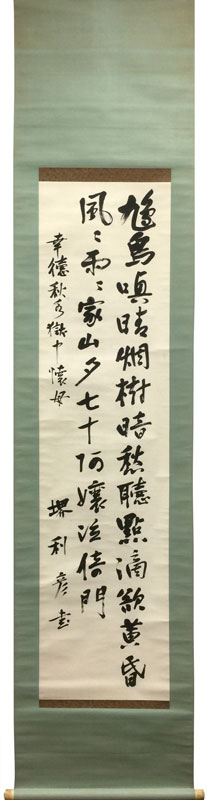 鳩鳥嗔晴烟樹暗愁聽點滴欲黄昏
風々雨々家山夕七十阿孃泣倚門
幸德秋水獄中懷母
堺利彦書